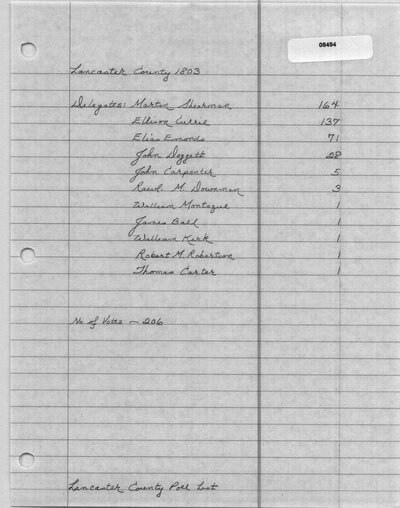 08494
Lancaster County 1803
Delegates: Martin Shearman 164
Ellison Currie 137
Elias Edmonds 71
John Doggett 28
John Carpenter 5
Rawl. M. Downman 3
William Montague 1
James Ball 1
William Kirk 1
Robert M. Robertson 1
Thomas Carter 1
No of Votes - 206
Lancaster County Poll List